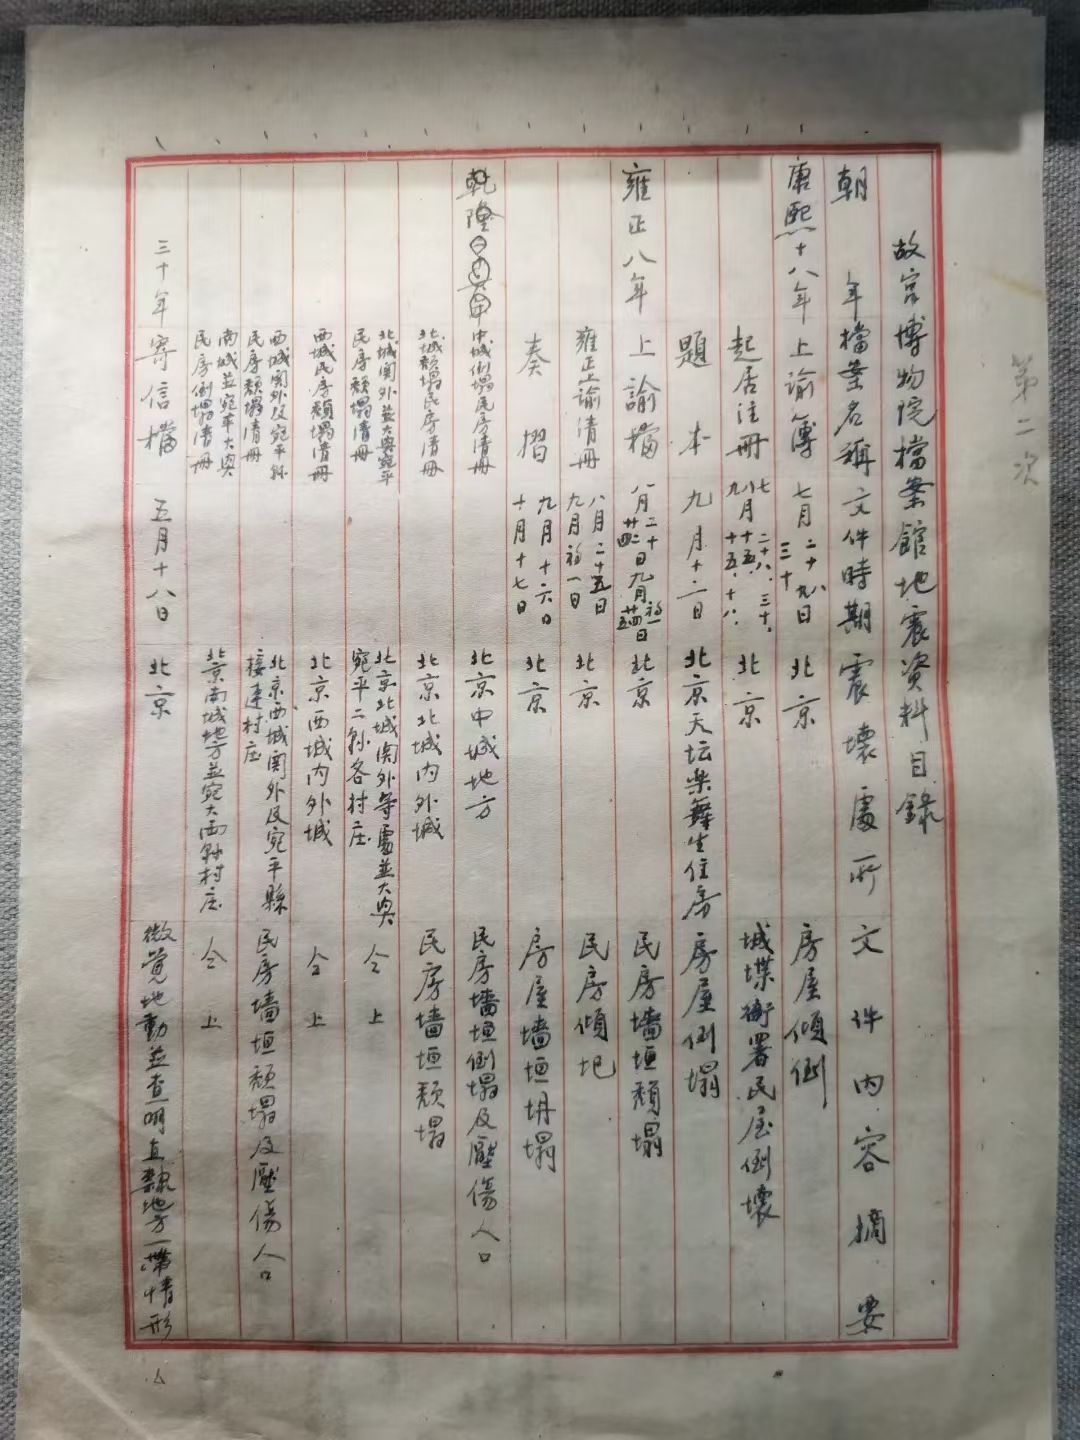 第二次
故宮博物院檔案館地震資料目錄
朝年檔案名稱文件時期震壞處所文件內容摘要
康熙十八年上諭簿七月二十九日三十北京房屋傾倒
起居注冊七二十八、三十、八月十五、九十五、十八、北京城堞衙署民屋倒壞
題本九月十二日北京天坛樂舞生住房房屋倒塌
雍正八年上諭檔八月二十日九月北京民房墻垣頹塌
雍正上諭清冊八月二十五日九月初一日北京民房傾圮
奏摺九月十六日十月十七日北京房屋墙垣坍塌
乾隆中城倒塌民房清冊北京中城地方民房墻垣倒塌及壓傷人口
北城頹塌民房清冊北京北城內外城民房墙垣頹塌
北城関外並大興宛平民房頹塌清冊北京北城関外等處並大興宛平二縣各村庄仝上
西城民房頹塌清冊北京西城内外城仝上
西城関外及宛平縣民房頹塌清冊北京西城関外及宛平縣接連村庄民房墻垣頹塌及壓傷人口
南城並宛平大興民房倒塌清冊北京南城地方並宛大両縣村庄仝上
三十年寄信檔五月十八日北京微覺地動並查明直隸地方一帶情形